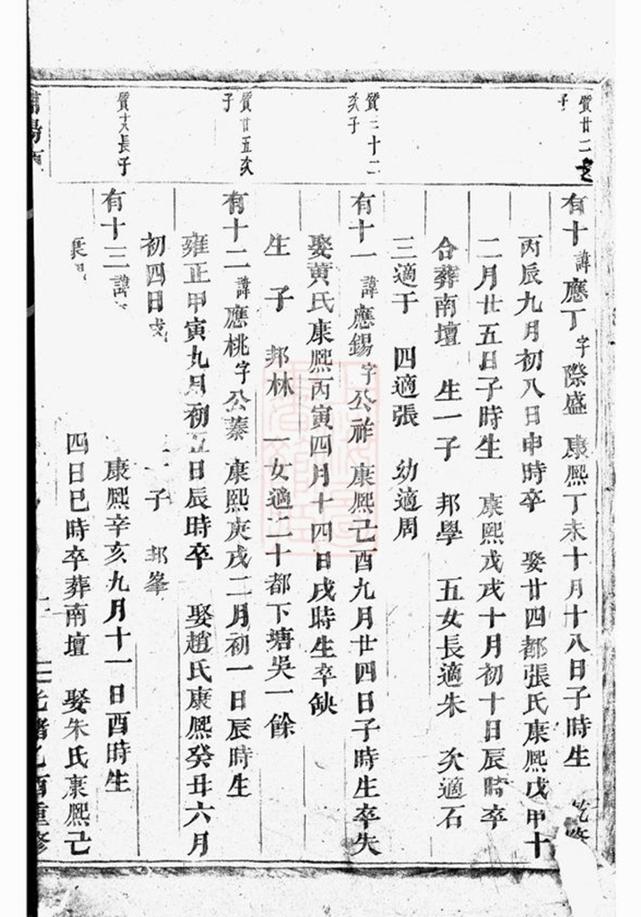 質廿二
子
有十諱應丁字際盛 康熙丁未十月十八日子時生
丙辰九月初八日申時卒 娶廿四都張氏康熙戊甲十
二月廿五日子時生 康熙戊戌十月初十日辰時卒
合葬南壇 生一子 邦學 五女長適朱 次適石
三適于 四適張 幼適周
質三十二
次子
有十一諱應錫字公祚 康熙己酉九月廿四日子時生卒失
娶黄氏康熙丙寅四月十四日戌時生卒缺
生子 邦林 一女適二十都下塘吳一餘
質廿五次
子
有十二諱應桃字公蓁 康熙庚戌二月初一日辰時生
雍正甲寅九月初五日辰時卒 娶趙氏康熙癸丑六月
初四日戌 一子 邦峯
質 長子
有十三諱 康熙辛亥九月十一日酉時生
四日巳時卒葬南壇 娶朱氏康熙己
光緒乙酉重修